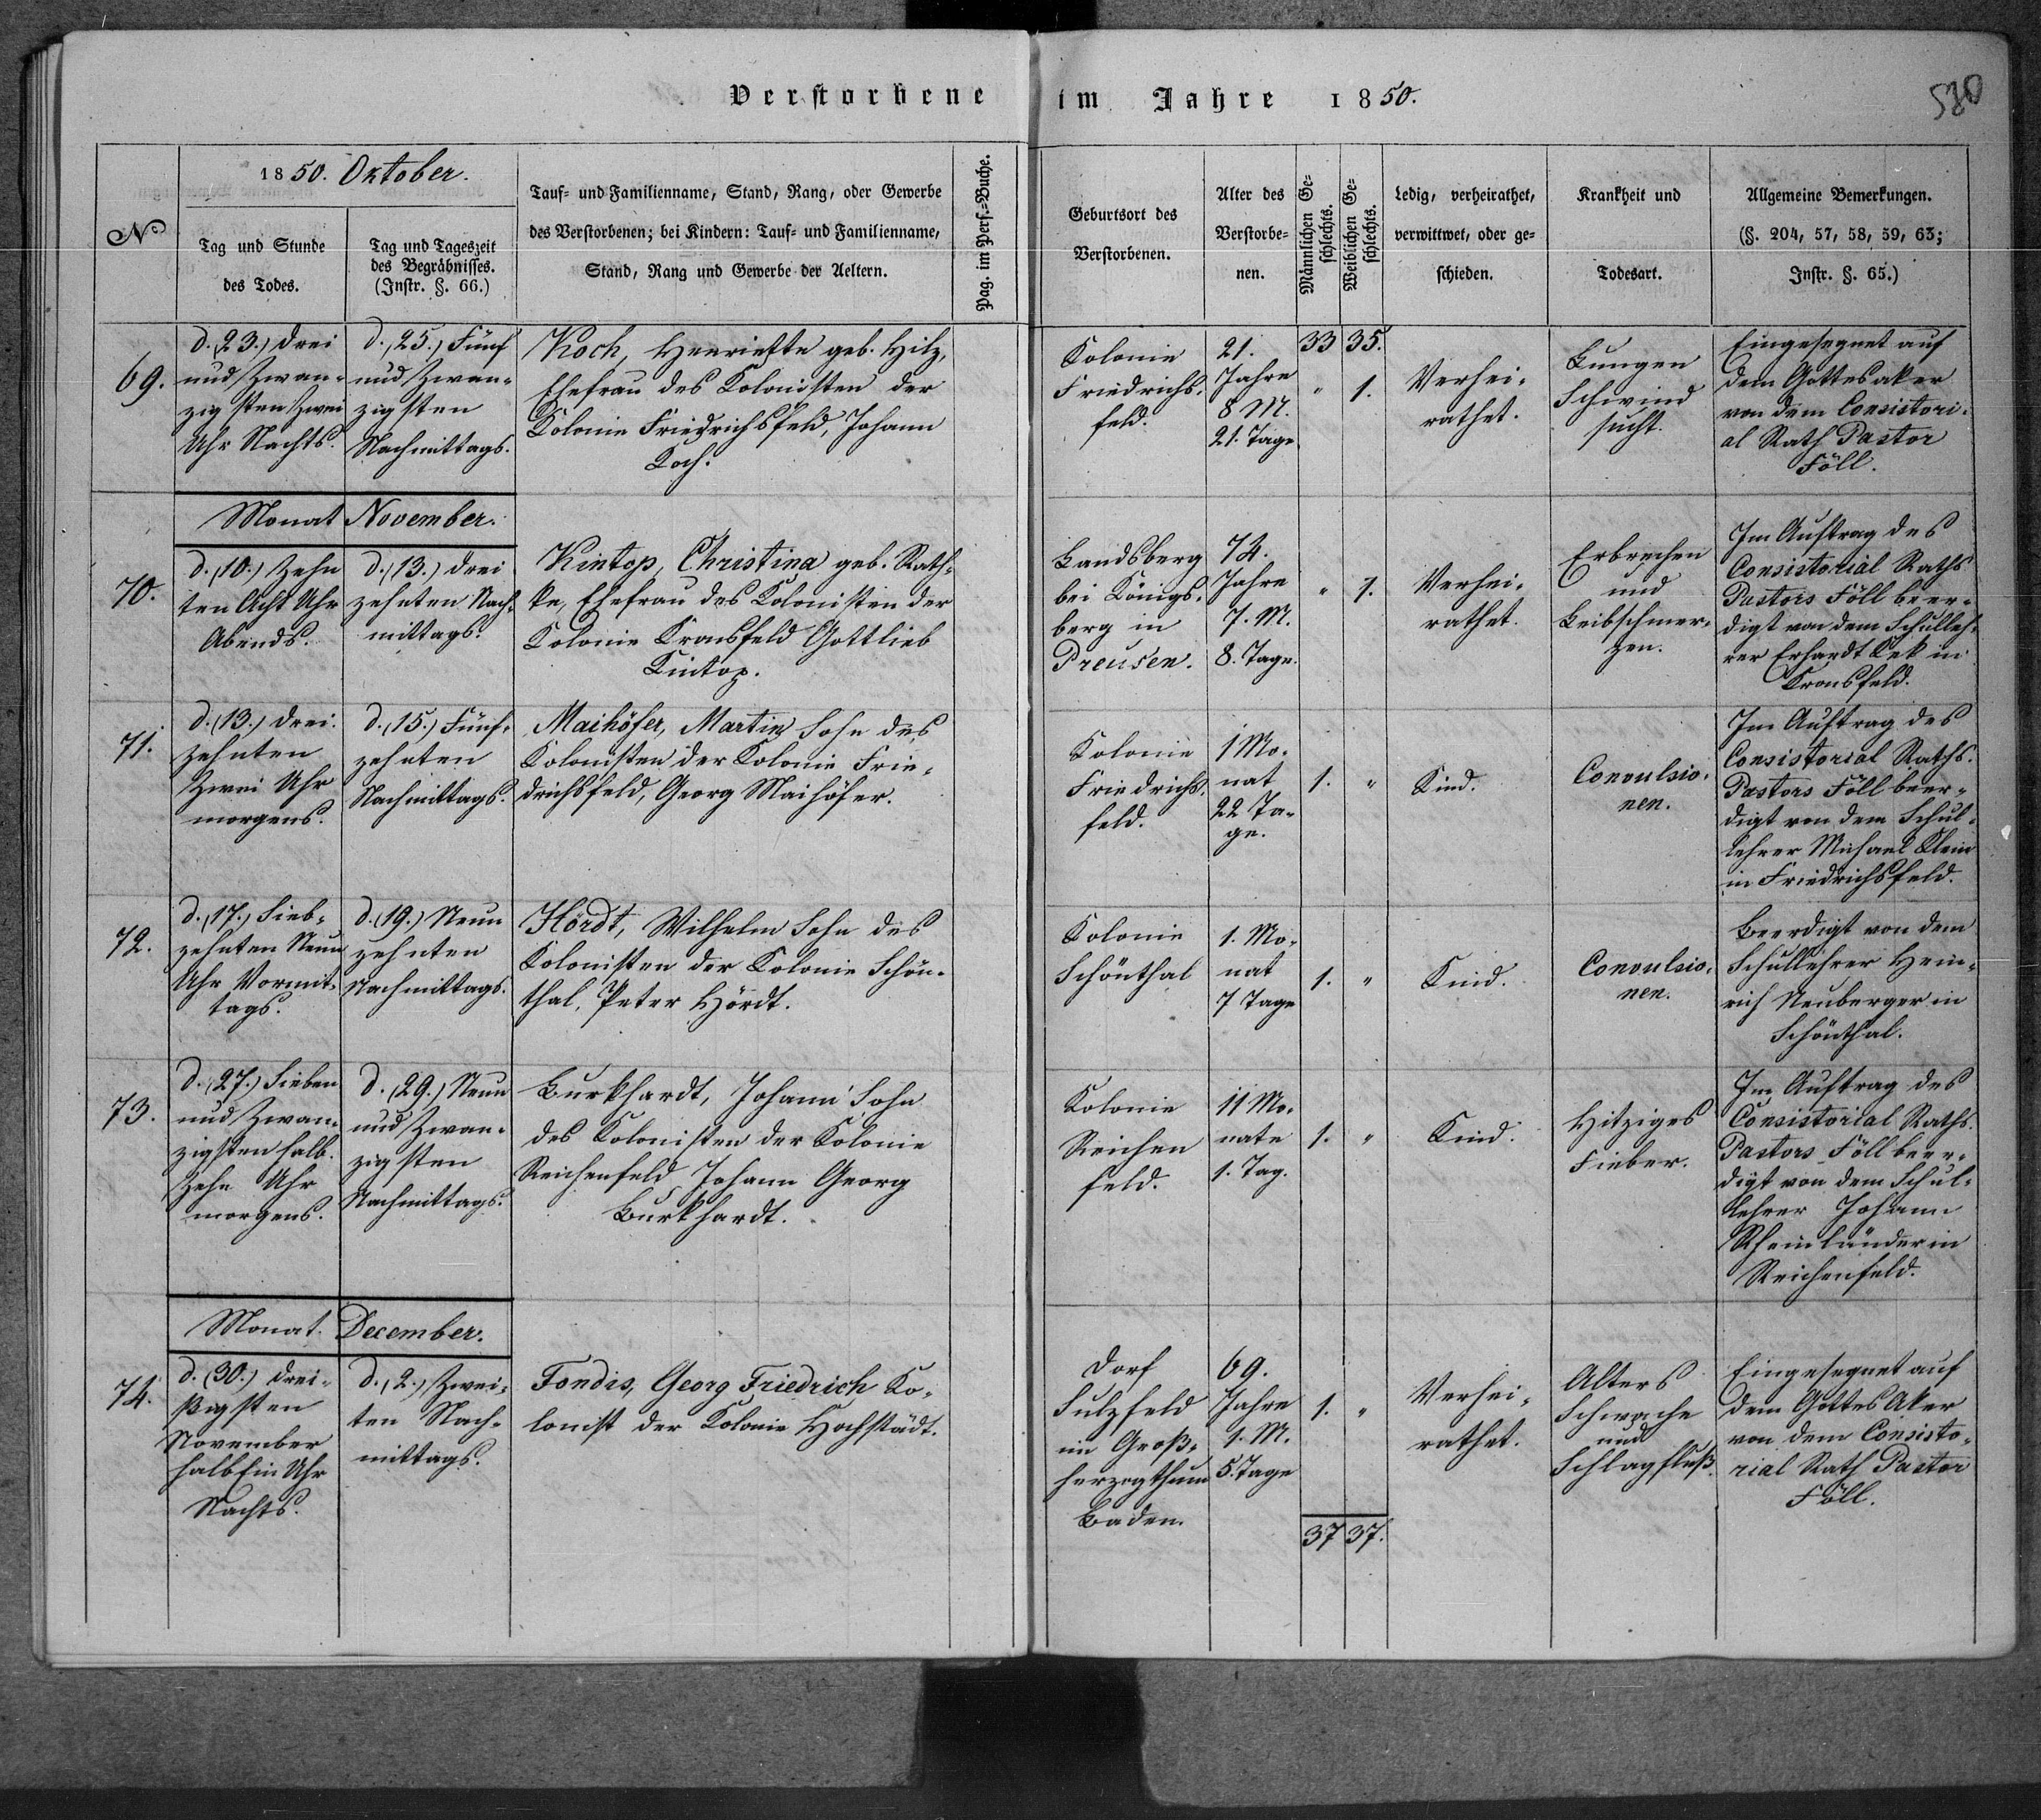 Verstorbene im Jahre 1850.
580
№
1850. Oktober.
Tag und Stunde
des Todes.
Tag und Tageszeit
des Begräbnisses.
(Instr. §. 66.)
Tauf- und Familienname, Stand, Rang, oder Gewerbe
des Verstorbenen; bei Kindern: Tauf- und Familienname,
Stand, Rang und Gewerbe der Aeltern.
Pag. im Pers.-Buche.
Geburtsort des
Verstorbenen.
Alter des
Verstorbe-
nen.
Männlichen Ge-
schlechts.
Weiblichen Ge-
schlechts.
Ledig, verheirathet,
verwittwet, oder ge-
schieden.
Krankheit und
Todesart.
Allgemeine Bemerkungen.
(§. 204, 57, 58, 59, 63;
Instr. §. 65.)
69.
d. (23.) drei
und Zwan-
zigsten Zwei
Uhr Nachts.
d. (25.) Fünf
und Zwan-
zigsten
Nachmittags.
Koch, Henriette geb. Hilz,
Ehefrau des Kolonisten der
Kolonie Friedrichsfeld, Johann
Koch.
Kolonie
Friedrichs-
feld.
21.
Jahre
8 M.
21. Tage
33 35.
" 1.
Verhei-
rathet.
Lungen
Schwind
sucht.
Eingesegnet auf
dem Gottesaker
von dem Consistori-
al Rath Pastor
Föll.
Monat November.
70.
d. (10.) Zehn
ten Acht Uhr
Abends.
d. (13.) drei
zehnten Nach-
mittags.
Kintop, Christina geb. Rath-
ke, Ehefrau des Kolonisten der
Kolonie Kronsfeld Gottlieb
Kintop.
Landsberg
bei Königs-
berg in
Preusen.
74.
Jahre
7. M.
8. Tage.
" 1.
Verhei-
rathet.
Erbrechen
und
Leibschmer-
zen.
Im Auftrag des
Consistorial Raths
Pastors Föll beer-
digt von dem Schulleh-
rer Erhardt Lek in
Kronsfeld.
71.
d. (13.) drei-
zehnten
Zwei Uhr
morgens.
d. (15.) Fünf-
zehnten
Nachmittags.
Maihöfer, Martin Sohn des
Kolonisten der Kolonie Frie-
drichsfeld, Georg Maihöfer.
Kolonie
Friedrichs-
feld.
1 Mo-
nat
22 Ta-
ge.
1. "
Kind.
Convulsio-
nen.
Im Auftrag des
Consistorial Raths
Pastors Föll beer-
digt von dem Schul-
lehrer Michael Klein
in Friedrichsfeld.
72.
d. (17.) Sieb-
zehnten Neun
Uhr Vormit-
tags.
d. (19.) Neun
zehnten
Nachmittags.
Hördt, Wilhelm Sohn des
Kolonisten der Kolonie Schön-
thal, Peter Hördt.
Kolonie
Schönthal
1. Mo-
nat
7 Tage
1. "
Kind.
Convulsio-
nen.
Beerdigt von dem
Schullehrer Hein-
rich Neuberger in
Schönthal.
73.
d. (27.) Sieben
und Zwan-
zigsten halb
Zehn Uhr
morgens.
d. (29.) Neun
und Zwan-
zigsten
Nachmittags.
Burkhardt, Johann Sohn
des Kolonisten der Kolonie
Reichenfeld Johann Georg
Burkhardt.
Kolonie
Reichen
feld.
11 Mo-
nate
1. Tag.
1. "
Kind.
Hitziges
Fieber.
Im Auftrag des
Consistorial Raths
Pastors Föll beer-
digt von dem Schul-
lehrer Johann
Rheinländer in
Reichenfeld.
Monat December.
74.
d. (30.) drei-
ßigsten
November
halb Ein Uhr
Nachts.
d. (2.) Zwei-
ten Nach-
mittags.
Fondis, Georg Friedrich Ko-
lonist der Kolonie Hochstädt.
Dorf
Sulzfeld
im Groß-
herzogthum
Baden.
69.
Jahre
1. M.
5. Tage
1. "
Verhei-
rathet.
Alters
Schwache
und
Schlagfluß.
Eingesegnet auf
dem Gottes Aker
von dem Consisto-
rial Rath Pastor
Föll.
37 37.